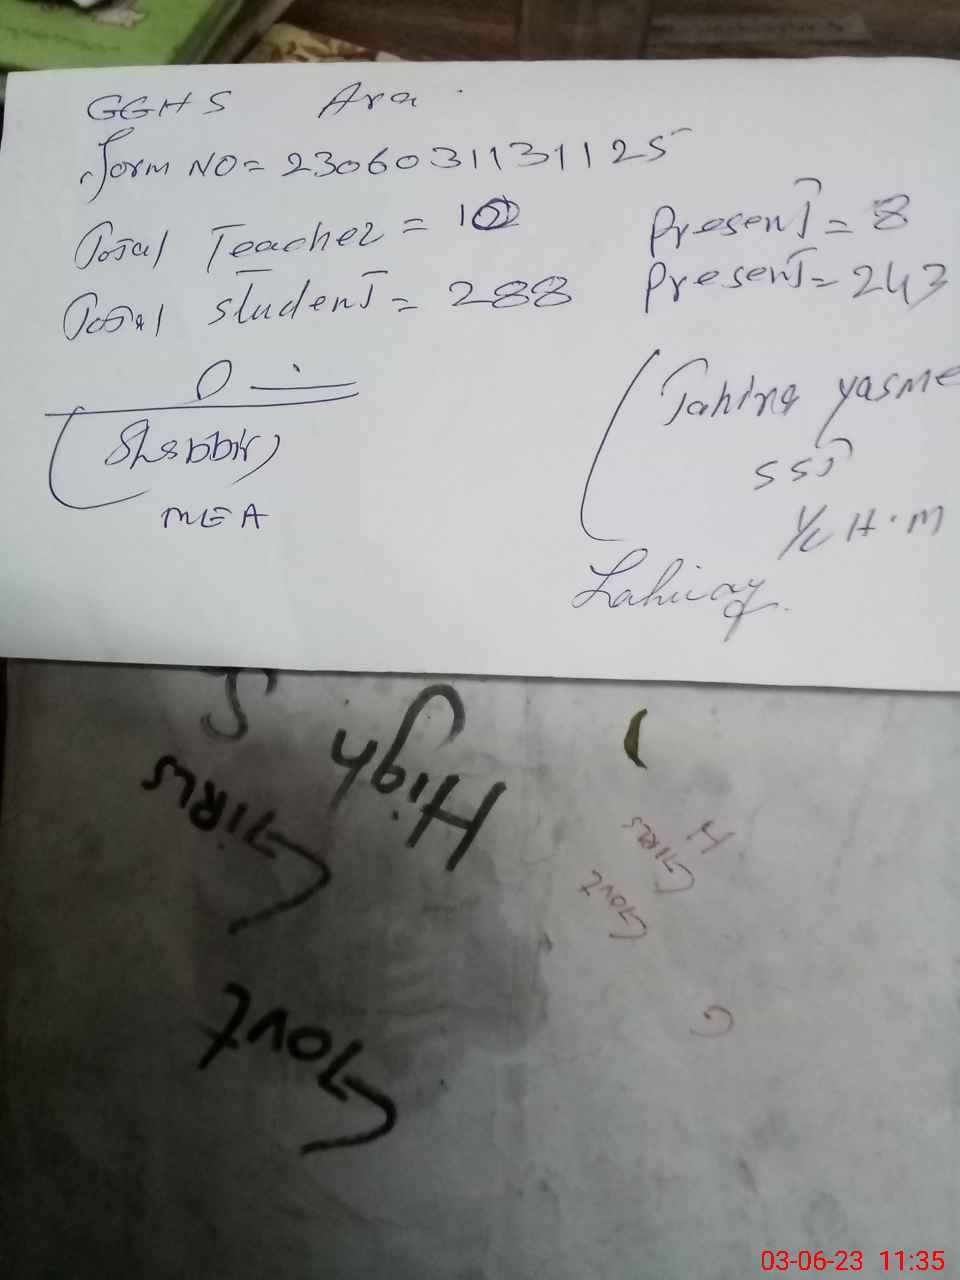 GGHS Ara
Form NO = 2306031131125
Total Teacher = 10 Present = 8
Total Student = 288 Present = 243
(Shabbir)
MEA
(Tahira yasme
SST
I/C H.M
High S
GIRLS
Govt
H
GIRLS
Govt
G
03-06-23 11:35